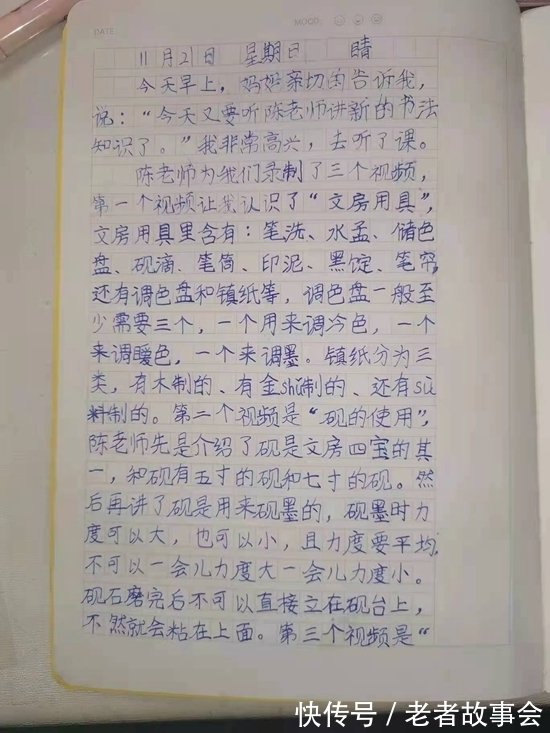 DATE
MOOD
11月21日 星期日 晴
今天早上，妈妈亲切的告诉我，
说：“今天又要听陈老师讲新的书法
知识了。”我非常高兴，去听了课。
陈老师为我们录制了三个视频，
第一个视频让我认识了“文房用具”，
文房用具里含有：笔洗、水盂、储色
盘、砚滴、笔筒、印泥、黑锭、笔帘，
还有调色盘和镇纸等，调色盘一般至
少需要三个，一个用来调冷色，一个
来调暖色，一个来调墨。镇纸分为三
类，有木制的、有金shǔ制的、还有sù
料制的。第二个视频是“砚的使用”，
陈老师先是介绍了砚是文房四宝的其
一，和砚有五寸的砚和七寸的砚。然
后再讲了砚是用来砚墨的，砚墨时力
度可以大，也可以小，且力度要平均，
不可以一会儿力度大一会儿力度小。
砚石磨完后不可以直接立在砚台上，
不然就会粘在上面。第三个视频是“
快传号／老者故事会